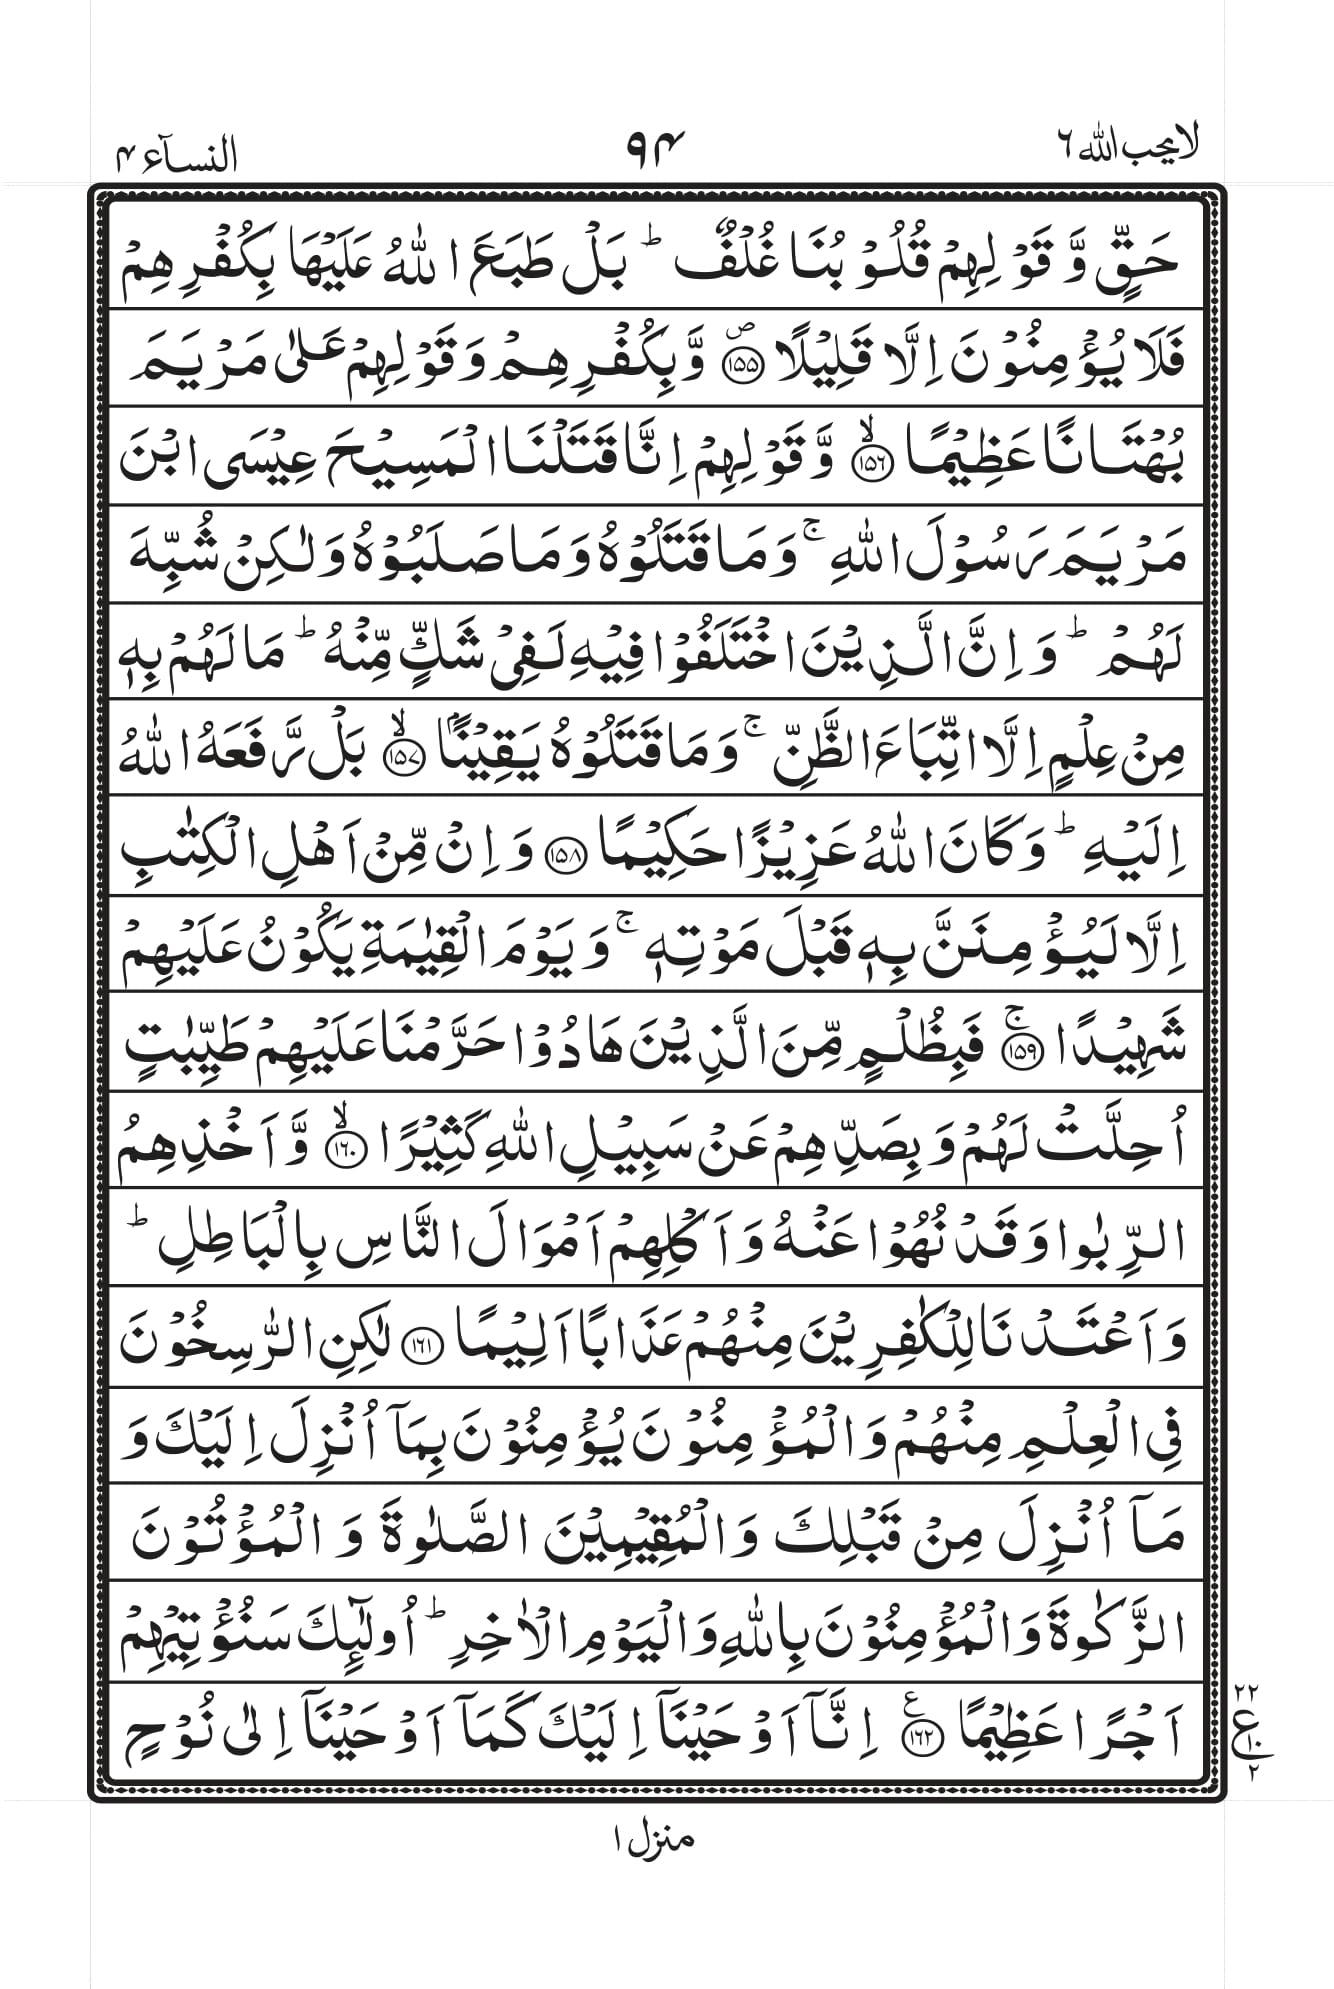 لا یحب الله ٦
٩۴
النسآء ۴
حَقٍّ وَّ قَوْلِهِمْ قُلُوْبُنَا غُلْفٌ ؕ بَلْ طَبَعَ اللّٰهُ عَلَیْهَا بِكُفْرِهِمْ
فَلَا یُؤْمِنُوْنَ اِلَّا قَلِیْلًا ۪﴿۱۵۵﴾ وَّ بِكُفْرِهِمْ وَ قَوْلِهِمْ عَلٰى مَرْیَمَ
بُهْتَانًا عَظِیْمًا ۙ﴿۱۵۶﴾ وَّ قَوْلِهِمْ اِنَّا قَتَلْنَا الْمَسِیْحَ عِیْسَى ابْنَ
مَرْیَمَ رَسُوْلَ اللّٰهِ ۚ وَ مَا قَتَلُوْهُ وَ مَا صَلَبُوْهُ وَ لٰكِنْ شُبِّهَ
لَهُمْ ؕ وَ اِنَّ الَّذِیْنَ اخْتَلَفُوْا فِیْهِ لَفِیْ شَكٍّ مِّنْهُ ؕ مَا لَهُمْ بِهٖ
مِنْ عِلْمٍ اِلَّا اتِّبَاعَ الظَّنِّ ۚ وَ مَا قَتَلُوْهُ یَقِیْنًۢا ۙ﴿۱۵۷﴾ بَلْ رَّفَعَهُ اللّٰهُ
اِلَیْهِ ؕ وَ كَانَ اللّٰهُ عَزِیْزًا حَكِیْمًا ﴿۱۵۸﴾ وَ اِنْ مِّنْ اَهْلِ الْكِتٰبِ
اِلَّا لَیُؤْمِنَنَّ بِهٖ قَبْلَ مَوْتِهٖ ۚ وَ یَوْمَ الْقِیٰمَةِ یَكُوْنُ عَلَیْهِمْ
شَهِیْدًا ۚ﴿۱۵۹﴾ فَبِظُلْمٍ مِّنَ الَّذِیْنَ هَادُوْا حَرَّمْنَا عَلَیْهِمْ طَیِّبٰتٍ
اُحِلَّتْ لَهُمْ وَ بِصَدِّهِمْ عَنْ سَبِیْلِ اللّٰهِ كَثِیْرًا ۙ﴿۱۶۰﴾ وَّ اَخْذِهِمُ
الرِّبٰوا وَ قَدْ نُهُوْا عَنْهُ وَ اَكْلِهِمْ اَمْوَالَ النَّاسِ بِالْبَاطِلِ ؕ
وَ اَعْتَدْنَا لِلْكٰفِرِیْنَ مِنْهُمْ عَذَابًا اَلِیْمًا ﴿۱۶۱﴾ لٰكِنِ الرّٰسِخُوْنَ
فِی الْعِلْمِ مِنْهُمْ وَ الْمُؤْمِنُوْنَ یُؤْمِنُوْنَ بِمَاۤ اُنْزِلَ اِلَیْكَ وَ
مَاۤ اُنْزِلَ مِنْ قَبْلِكَ وَ الْمُقِیْمِیْنَ الصَّلٰوةَ وَ الْمُؤْتُوْنَ
الزَّكٰوةَ وَ الْمُؤْمِنُوْنَ بِاللّٰهِ وَ الْیَوْمِ الْاٰخِرِ ؕ اُولٰٓىِٕكَ سَنُؤْتِیْهِمْ
اَجْرًا عَظِیْمًا ﴿۱۶۲﴾ ع اِنَّاۤ اَوْحَیْنَاۤ اِلَیْكَ كَمَاۤ اَوْحَیْنَاۤ اِلٰى نُوْحٍ
۲۲
ع ۱۰
۲
منزل ۱